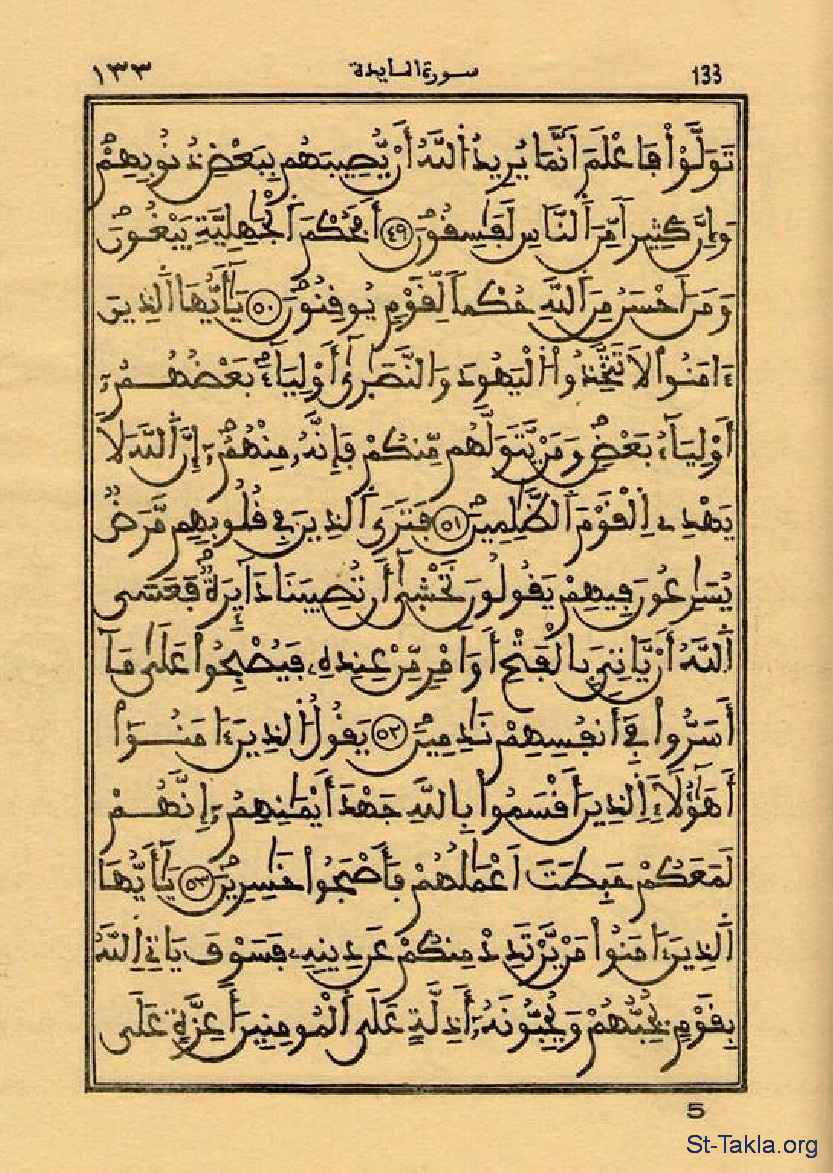 133 سورة المايدة ١٣٣
تَوَلَّوْاْ فَاعْلَمَ اَنَّمَا يُرِيدُ اُللَّهُ أَنْ يُّصِيبَهُم بِبَعْضِ ذُنُوبِهِمْ
وَإِنَّ كَثِيراً مِّنَ اَلنَّاسِ لَفَٰسِقُونَ ٤٩ أَفَحُكْمَ اَلْجَٰهِلِيَّةِ يَبْغُونَ
وَمَنَ اَحْسَنُ مِنَ اَللَّهِ حُكْماً لِّقَوْمٍ يُوقِنُونَ ٥٠ يَٰأَيُّهَا اَلذِينَ
ءَامَنُواْ لَا تَتَّخِذُواْ اُلْيَهُودَ وَالنَّصَٰرَىٰ أَوْلِيَآءَ بَعْضُهُمُۥٓ
أَوْلِيَآءُ بَعْضٍ وَمَنْ يَّتَوَلَّهُم مِّنكُمْ فَإِنَّهُۥ مِنْهُمُۥٓ إِنَّ اَللَّهَ لَا
يَهْدِے اِلْقَوْمَ اَلظَّٰلِمِينَ ٥١ فَتَرَى اَلذِينَ فِے قُلُوبِهِم مَّرَضٌ
يُسَٰرِعُونَ فِيهِمْ يَقُولُونَ نَخْشَىٰٓ أَن تُصِيبَنَا دَآئِرَةٌ فَعَسَى
اَللَّهُ أَنْ يَّاتِيَ بِالْفَتْحِ أَوَ اَمْرٍ مِّنْ عِندِهِۦ فَيُصْبِحُواْ عَلَىٰ مَآ
أَسَرُّواْ فِےٓ أَنفُسِهِمْ نَٰدِمِينَ ٥٢ يَقُولُ اُلذِينَ ءَامَنُوٓاْ
أَهَٰٓؤُلَآءِ اِلذِينَ أَقْسَمُواْ بِاللَّهِ جَهْدَ أَيْمَٰنِهِمُۥٓ إِنَّهُمْ
لَمَعَكُمْ حَبِطَتَ اَعْمَٰلُهُمْ فَأَصْبَحُواْ خَٰسِرِينَ ٥٣ يَٰأَيُّهَا
اَلذِينَ ءَامَنُواْ مَنْ يَّرْتَدِدْ مِنكُمْ عَن دِينِهِۦ فَسَوْفَ يَاتِے اِللَّهُ
بِقَوْمٍ يُحِبُّهُمْ وَيُحِبُّونَهُۥٓ أَذِلَّةٍ عَلَى اَلْمُومِنِينَ أَعِزَّةٍ عَلَى
5
St-Takla.org